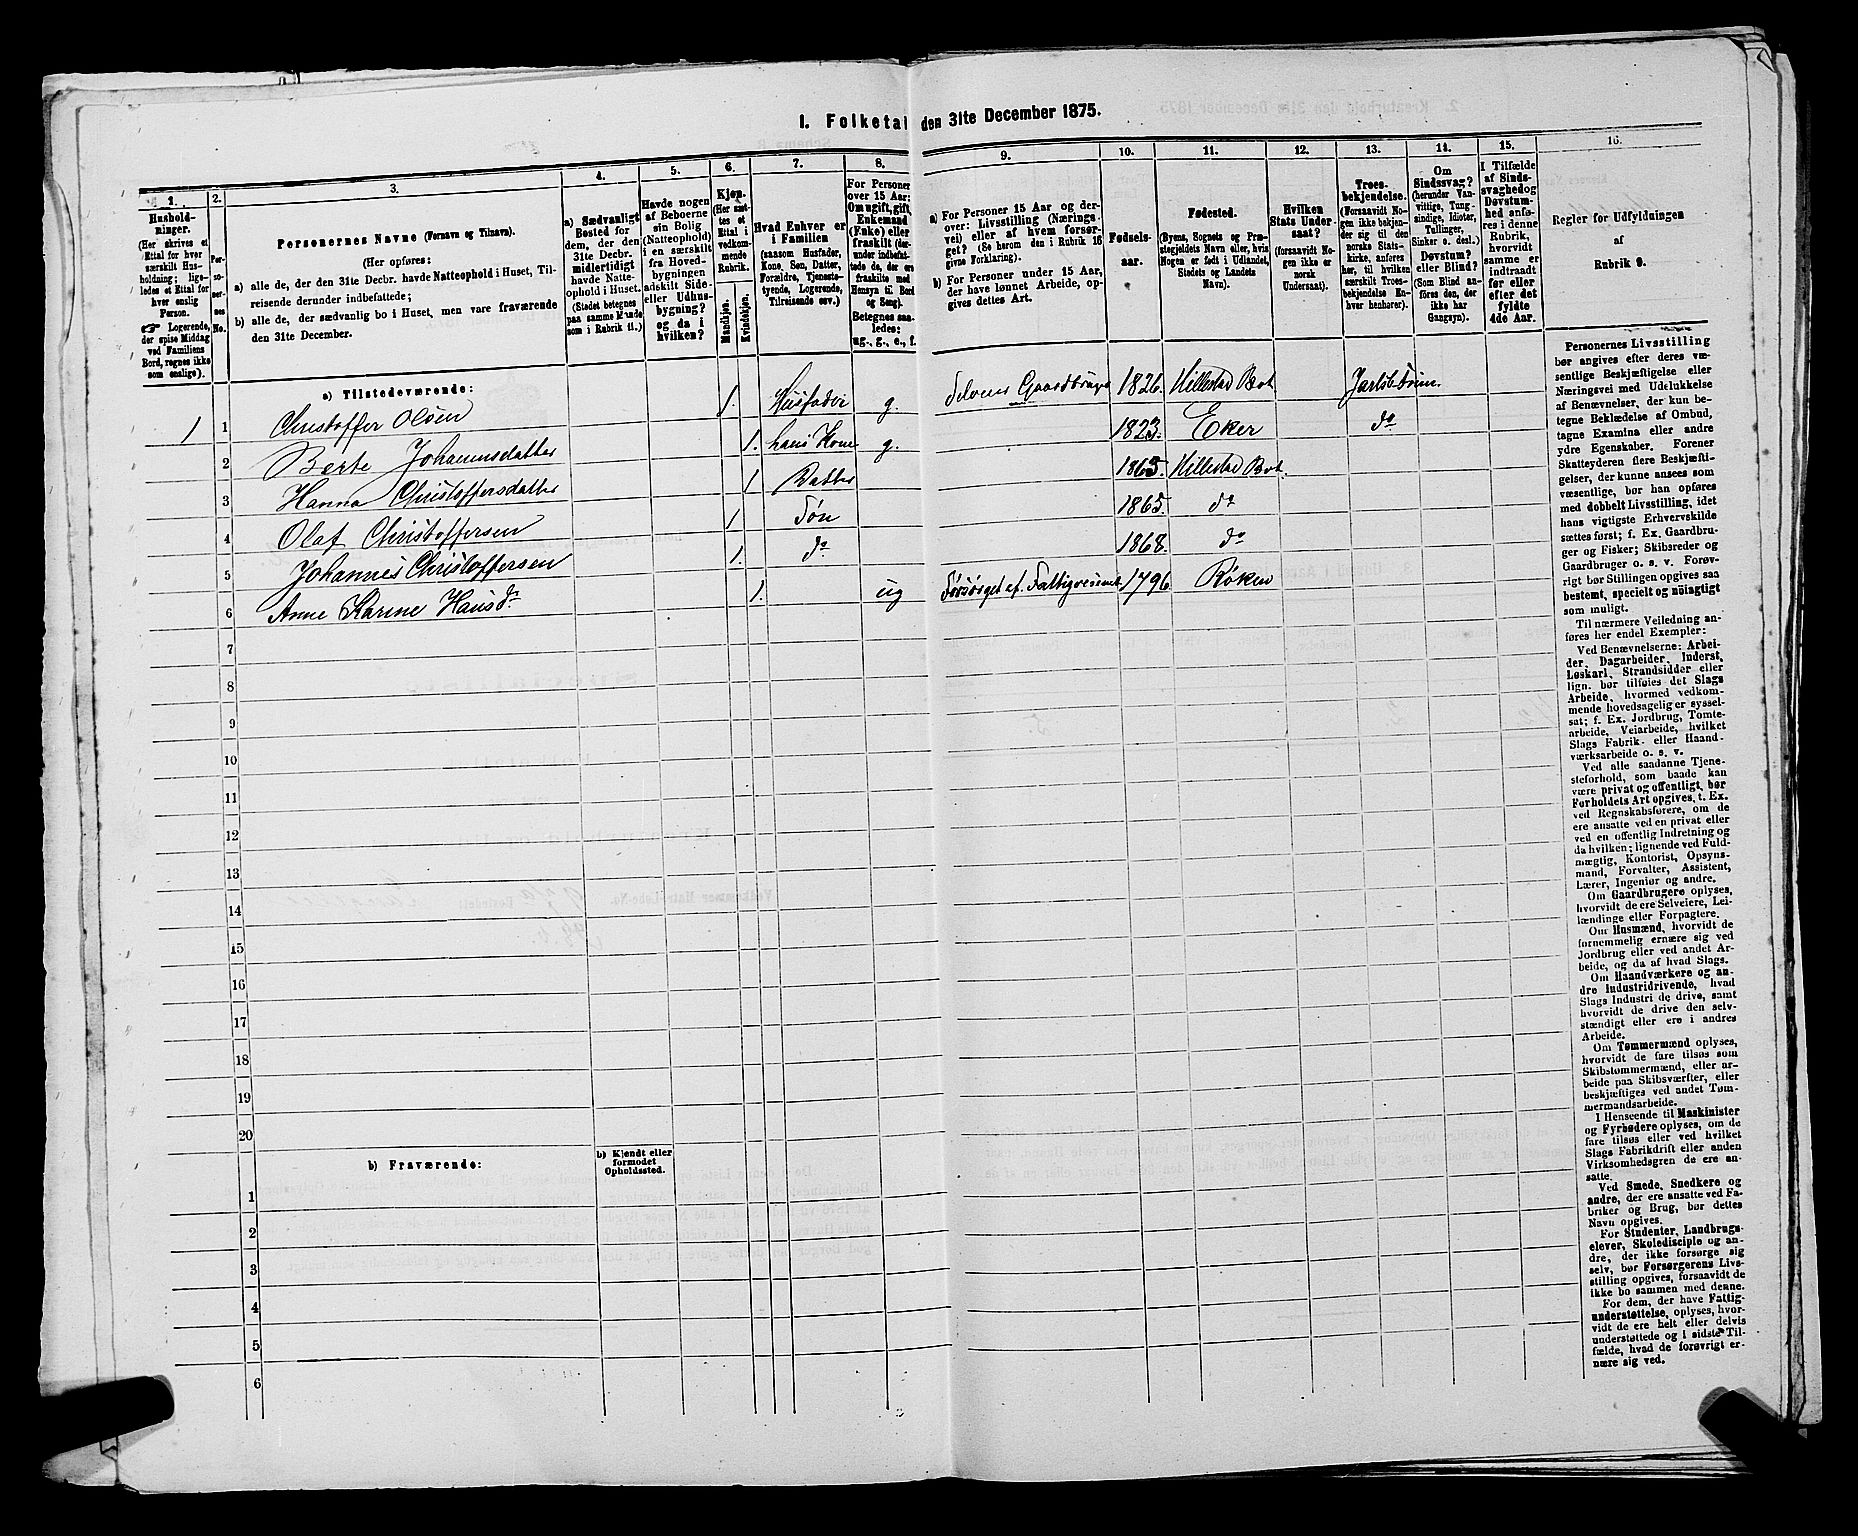 I. Folketal den 31te December 1875.
1.
Hushold-
ninger.
(Her skrives et
Ettal for hver
særskilt Hus-
holdning; lige-
ledes et Ettal for
hver enslig
Person.
☞ Logerende,
der spise Middag
ved Familiens
Bord, regnes ikke
som enslige).
2.
Per-
so-
ner-
nes
No.
3.
Personernes Navne (Fornavn og Tilnavn).
(Her opføres:
a) alle de, der den 31te Decbr. havde Natteophold i Huset, Til-
reisende derunder indbefattede;
b) alle de, der sædvanlig bo i Huset, men vare fraværende
den 31te December.
4.
a) Sædvanligt
Bosted for
dem, der den
31te Decbr.
midlertidigt
havde Natte-
ophold i Huset.
(Stedet betegnes
paa samme Maade
som i Rubrik 11.)
5.
Havde nogen
af Beboerne
sin Bolig
(Natteophold)
i en særskilt
fra Hoved-
bygningen
adskilt Side-
eller Udhus-
bygning?
og da i
hvilken?
6.
Kjøn.
(Her sæt-
tes et
Ettal i
vedkom-
mende
Rubrik.
Mandkjøn.
Kvindekjøn.
7.
Hvad Enhver er
i Familien
(saasom Husfader,
Kone, Søn, Datter,
Forældre, Tjeneste-
tyende, Logerende,
Tilreisende osv.)
8.
For Personer
over 15 Aar:
Om ugift, gift,
Enkemand
(Enke) eller
fraskilt (der-
under indbefat-
tede de, der ere
fraskilte med
Hensyn til Bord
og Seng).
Betegnes saa-
ledes:
ug., g., e., f.
9.
a) For Personer 15 Aar og der-
over: Livsstilling (Nærings-
vei) eller af hvem forsør-
get? (Se herom den i Rubrik 16
givne Forklaring).
b) For Personer under 15 Aar,
der have lønnet Arbeide, op-
gives dettes Art.
10.
Fødsels-
aar.
11.
Fødested.
(Byens, Sognets og Præ-
stegjeldets Navn eller, hvis
Nogen er født i Udlandet,
Stedets og Landets
Navn).
12.
Hvilken
Stats Under-
saat?
(forsaavidt No-
gen ikke er
norsk
Undersaat).
13.
Troes-
bekjendelse.
(Forsaavidt No-
gen ikke bekjen-
der sig til den
norske Stats-
kirke, anføres
her, til hvilken
særskilt Troes-
bekjendelse En-
hver henhører).
14.
Om
Sindssvag?
(herunder Van-
vittige, Tung-
sindige, Idioter,
Tullinger,
Sinker o. desl.)
Døvstum?
eller Blind?
(Som Blind an-
føres den, der
ikke har
Gangsyn).
15.
I Tilfælde
af Sinds-
svaghed og
Døvstum-
hed anfø-
res i denne
Rubrik,
hvorvidt
samme er
indtraadt
før eller
efter det
fyldte
4de Aar.
16.
Regler for Udfyldningen
af
Rubrik 9.
a) Tilstedeværende:
1 1 Christoffer Olsen 1. Husfader g. Selveier Gaardbruger 1826. Hillestad Bot.
2 Berte Johannesdatter 1. hans Kone g. 1823. Eker do
3 Hanna Christoffersdatter 1 Datter 1865. Hillestad Bot.
4 Olaf Christoffersen 1 Søn 1865. do
5 Johannes Christoffersen 1. do 1868. do
6 Anne Karine Hansdr 1. ug Forsørget af Fattigvesenet 1796. Røken
7
8
9
10
11
12
13
14
15
16
17
18
19
20
b) Fraværende:
b) Kjendt eller
formodet
Opholdssted.
1
2
3
4
5
6
Personernes Livsstilling
bør angives efter deres væ-
sentlige Beskjæftigelse eller
Næringsvei med Udelukkelse
af Benævnelser, der kun be-
tegne Beklædelse af Ombud,
tagne Examina eller andre
ydre Egenskaber. Forener
Skatteyderen flere Beskjæfti-
gelser, der kunne ansees som
væsentlige, bør han opføres
med dobbelt Livsstilling, idet
hans vigtigste Erhvervskilde
sættes først; f. Ex. Gaardbru-
ger og Fisker; Skibsreder og
Gaardbruger o. s. v. Forøv-
rigt bør Stillingen opgives saa
bestemt, specielt og nöiagtigt
som muligt.
Til nærmere Veiledning an-
føres her endel Exempler:
Ved Benævnelserne: Arbei-
der, Dagarbeider, Inderst,
Løskarl, Strandsidder eller
lign. bør tilføies det Slags
Arbeide, hvormed vedkom-
mende hovedsagelig er syssel-
sat; f. Ex. Jordbrug, Tomte-
arbeide, Veiarbeide, hvilket
Slags Fabrik- eller Haand-
værksarbeide o. s. v.
Ved alle saadanne Tjene-
steforhold, som baade kan
være privat og offentligt, bør
Forholdets Art opgives, t. Ex.
ved Regnskabsførere, om de
ere ansatte ved en privat eller
ved en offentlig Indretning og
da hvilken; lignende ved Fuld-
mægtig, Kontorist, Opsyns-
mand, Forvalter, Assistent,
Lærer, Ingeniør og andre.
Om Gaardbrugere oplyses,
hvorvidt de ere Selveiere, Lei-
lændinge eller Forpagtere.
Om Husmænd, hvorvidt de
fornemmelig ernære sig ved
Jordbrug eller ved andet Ar-
beide, og da af hvad Slags.
Om Haandværkere og an-
dre Industridrivende, hvad
Slags Industri de drive, samt
hvorvidt de drive den selv-
stændigt eller ere i andres
Arbeide.
Om Tømmermænd oplyses,
hvorvidt de fare tilsøs som
Skibstømmermænd, eller ar-
beide paa Skibsværfter, eller
beskjæftiges ved andet Tøm-
mermandsarbeide.
I Henseende til Maskinister
og Fyrbødere oplyses, om de
fare tilsøs eller ved hvilket
Slags Fabrikdrift eller anden
Virksomhedsgren de ere an-
satte.
Ved Smede, Snedkere og
andre, der ere ansatte ved Fa-
briker og Brug, bør dettes
Navn opgives.
For Studenter, Landbrugs-
elever, Skoledisciple og an-
dre, der ikke forsørge sig
selv, bør Forsørgerens Livs-
stilling opgives, forsaavidt de
ikke bo sammen med denne.
For dem, der have Fattig-
understøttelse, oplyses, hvor-
vidt de ere helt eller delvis
understøttede og i sidste Til-
fælde, hvad de forøvrigt er-
nære sig ved.